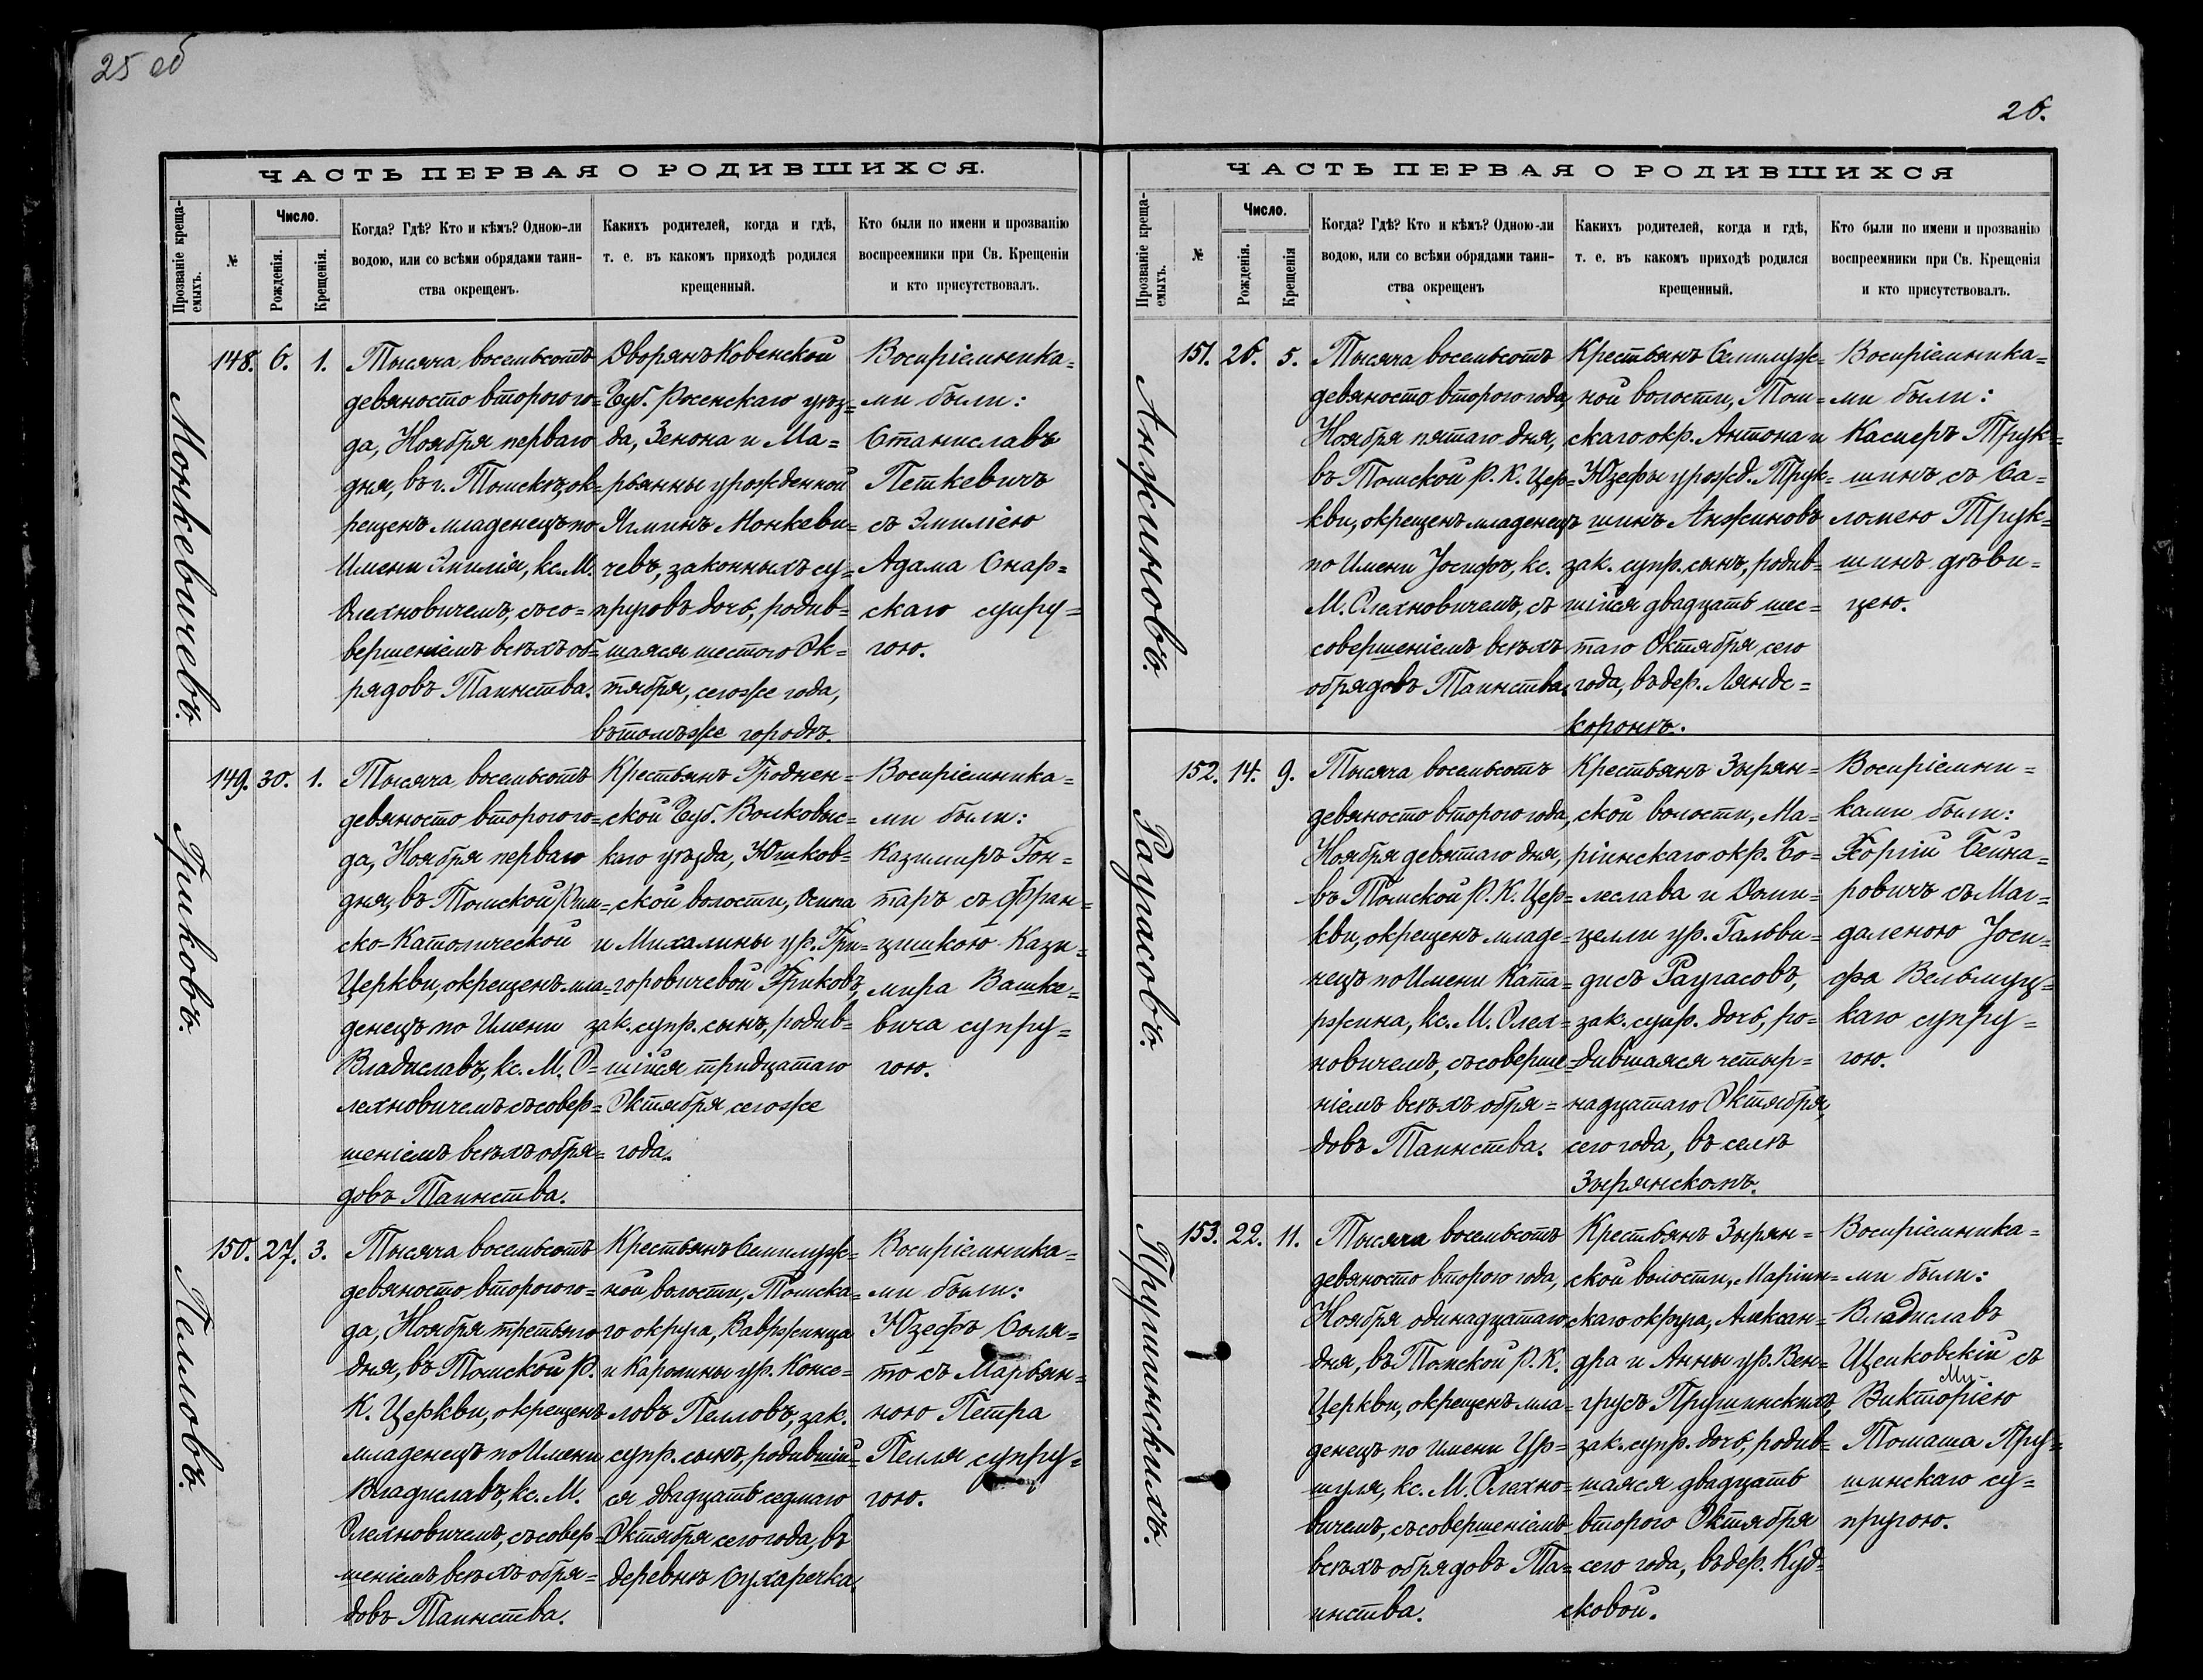 25 об
ЧАСТЬ ПЕРВАЯ О РОДИВШИХСЯ.
Прозваніе креща-
емыхъ.
№
Число.
Рожденія.
Крещенія.
Когда? Гдѣ? Кто и кѣмъ? Одною-ли
водою, или со всѣми обрядами таин-
ства окрещенъ.
Какихъ родителей, когда и гдѣ,
т. е. въ какомъ приходѣ родился
крещенный.
Кто были по имени и прозванію
воспреемники при Св. Крещеніи
и кто присутствовалъ.
Монкевичевъ.
148. 6. 1.
Тысяча восемьсотъ
девяносто второго го=
да, Ноября перваго
дня, въ г. Томскѣ, ок=
рещенъ младенецъ по
Имени Эмилія, кс. М.
Олехновичемъ, съ со=
вершеніемъ всѣхъ об=
рядовъ Таинства.
Дворянъ Ковенской
Губ. Росенскаго уѣз=
да, Зенона и Ма=
рьянны урожденной
Ялминъ Монкеви=
чевъ, законныхъ су=
пруговъ дочь, родив=
шаяся шестого Ок=
тября, сегоже года,
въ томъ же городѣ.
Воспріемника=
ми были:
Станиславъ
Петкевичъ
съ Эмиліею
Адама Снар=
скаго супру=
гою.
Гриковъ.
149. 30. 1.
Тысяча восемьсотъ
девяносто второго го=
да, Ноября перваго
дня, въ Томской Рим=
ско-Католической
Церкви, окрещенъ мла=
денецъ по Имени
Владиславъ, кс. М. О=
лехновичемъ съ совер=
шеніемъ всѣхъ обря=
довъ Таинства.
Крестьянъ Гроднен=
ской Губ. Волковыс=
каго уѣзда, Юшков=
ской волости, Осипа
и Михалины ур. Гри=
горовичевой Гриковъ,
зак. супр. сынъ, родив=
шійся тридцатаго
Октября, сегоже
года.
Воспріемника=
ми были:
Казимиръ Гон=
таръ съ Фран=
цишкою Кази=
мира Вашке=
вича супру=
гою.
Пемловъ.
150. 27. 3.
Тысяча восемьсотъ
девяносто второго го=
да, Ноября третьяго
дня, въ Томской Р.
К. Церкви, окрещенъ
младенецъ по Имени
Владиславъ, кс. М.
Олехновичемъ, съ совер=
шеніемъ всѣхъ обря=
довъ Таинства.
Крестьянъ Семилуж=
ной волости, Томска=
го округа, Вавржинца
и Каролины ур. Консе=
ловъ Пемловъ, зак.
супр. сынъ, родившій=
ся двадцать седмаго
Октября сего года, въ
деревнѣ Сухаречка.
Воспріемника=
ми были:
Юзефъ Соля=
то съ Марьян=
ною Петра
Пемля супру=
гою.
26.
ЧАСТЬ ПЕРВАЯ О РОДИВШИХСЯ
Прозваніе креща-
емыхъ.
№
Число.
Рожденія.
Крещенія
Когда? Гдѣ? Кто и кѣмъ? Одною-ли
водою, или со всѣми обрядами таин-
ства окрещенъ
Какихъ родителей, когда и гдѣ,
т. е. въ какомъ приходѣ родился
крещенный.
Кто были по имени и прозванію
воспреемники при Св. Крещенія
и кто присутствовалъ.
Анжиновъ.
151. 26. 5.
Тысяча восемьсотъ
девяносто второго года,
Ноября пятаго дня,
въ Томской Р. К. Цер=
кви, окрещенъ младенецъ
по Имени Іосифъ, кс.
М. Олехновичемъ, съ
совершеніемъ всѣхъ
обрядовъ Таинства.
Крестьянъ Семилуж=
ной волости, Том=
скаго окр. Антона и
Юзефы урожд. Трук=
шинъ Анжиновъ
зак. супр. сынъ, родив=
шійся двадцать шес=
таго Октября, сего
года, въ дер. Ландс=
коронѣ.
Воспріемника=
ми были:
Касперъ Трук=
шинъ съ Са=
ломею Трук=
шинъ дѣви=
цею.
Раугасовъ.
152. 14. 9.
Тысяча восемьсотъ
девяносто второго года,
Ноября девятаго дня,
въ Томской Р. К. Цер=
кви, окрещенъ младе=
нецъ по Имени Ката=
ржина, кс. М. Олех=
новичемъ, съ соверше=
ніемъ всѣхъ обря=
довъ Таинства.
Крестьянъ Зырян=
ской волости, Ма=
ріинскаго окр. Бо=
леслава и Доми=
целли ур. Гальви=
дисъ Раугасовъ,
зак. супр. дочь, ро=
дившаяся четыр=
надцатаго Октября,
сего года, въ селѣ
Зырянскомъ.
Воспріемни=
ками были:
Хоргій Бейна=
ровичъ съ Маг=
даленою Іоси=
фа Вельмуц=
каго супру=
гою.
Прушинскихъ.
153. 22. 11.
Тысяча восемьсотъ
девяносто второго года,
Ноября одинадцатаго
дня, въ Томской Р. К.
Церкви, окрещенъ мла=
денецъ по имени Ур=
шуля, кс. М. Олехно=
вичемъ, съ совершеніемъ
всѣхъ обрядовъ Та=
инства.
Крестьянъ Зырян=
ской волости, Маріин=
скаго округа, Алексан=
дра и Анны ур. Вен=
грусъ Прушинскихъ,
зак. супр. дочь, родив=
шаяся двадцать
второго Октября
сего года, въ дер. Куд=
сковой.
Воспріемника=
ми были:
Владиславъ
Щепковскій съ
Викторіею
Томаша Пру=
шинскаго су=
пругою.